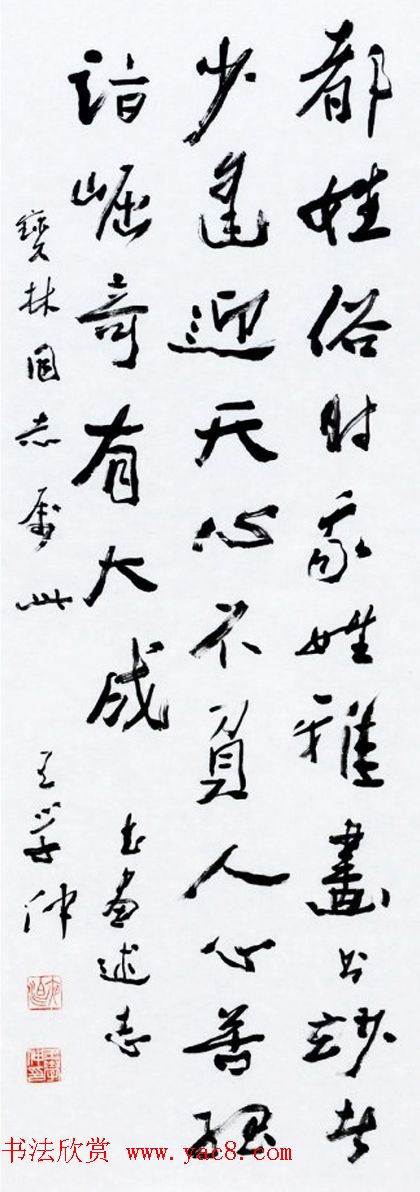 都姓俗时我姓雅畫妙者
少逢迎天心不負人心善
诘崛奇有大成 书画述志
寶林同志属 王学仲
书法欣赏 www.yac8.com